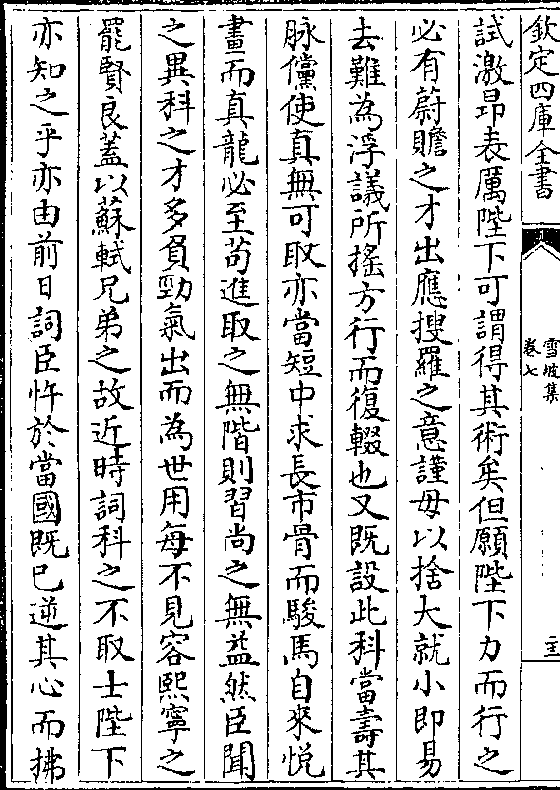 欽定四庫全書
雪坡集
卷七
試激昂表厲陛下可謂得其術矣但願陛下力而行之
必有蔚贍之才出應搜羅之意謹毋以捨大就小即易
去難為浮議所搖方行而復輟也又既設此科當壽其
脉儻使真無可取亦當短中求長市骨而駿馬自來悅
畫而真龍必至茍進取之無階則習尚之無益然臣聞
之異科之才多負勁氣出而為世用每不見容熙寧之
罷賢良蓋以蘇軾兄弟之故近時詞科之不取士陛下
亦知之乎亦由前日詞臣忤於當國既已逆其心而拂